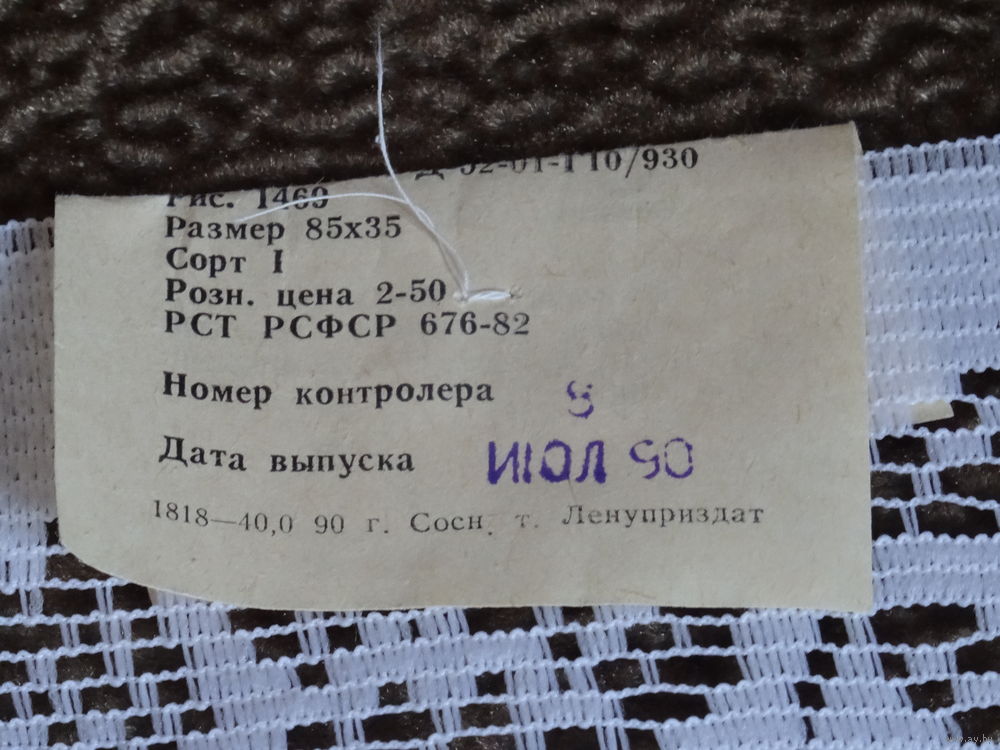 Рис. 1460
Размер 85х35
Сорт I
Розн. цена 2-50
РСТ РСФСР 676-82
Номер контролера
Дата выпуска ИЮЛ 90
1818—40,0 90 г. Сосн. т. Ленуприздат